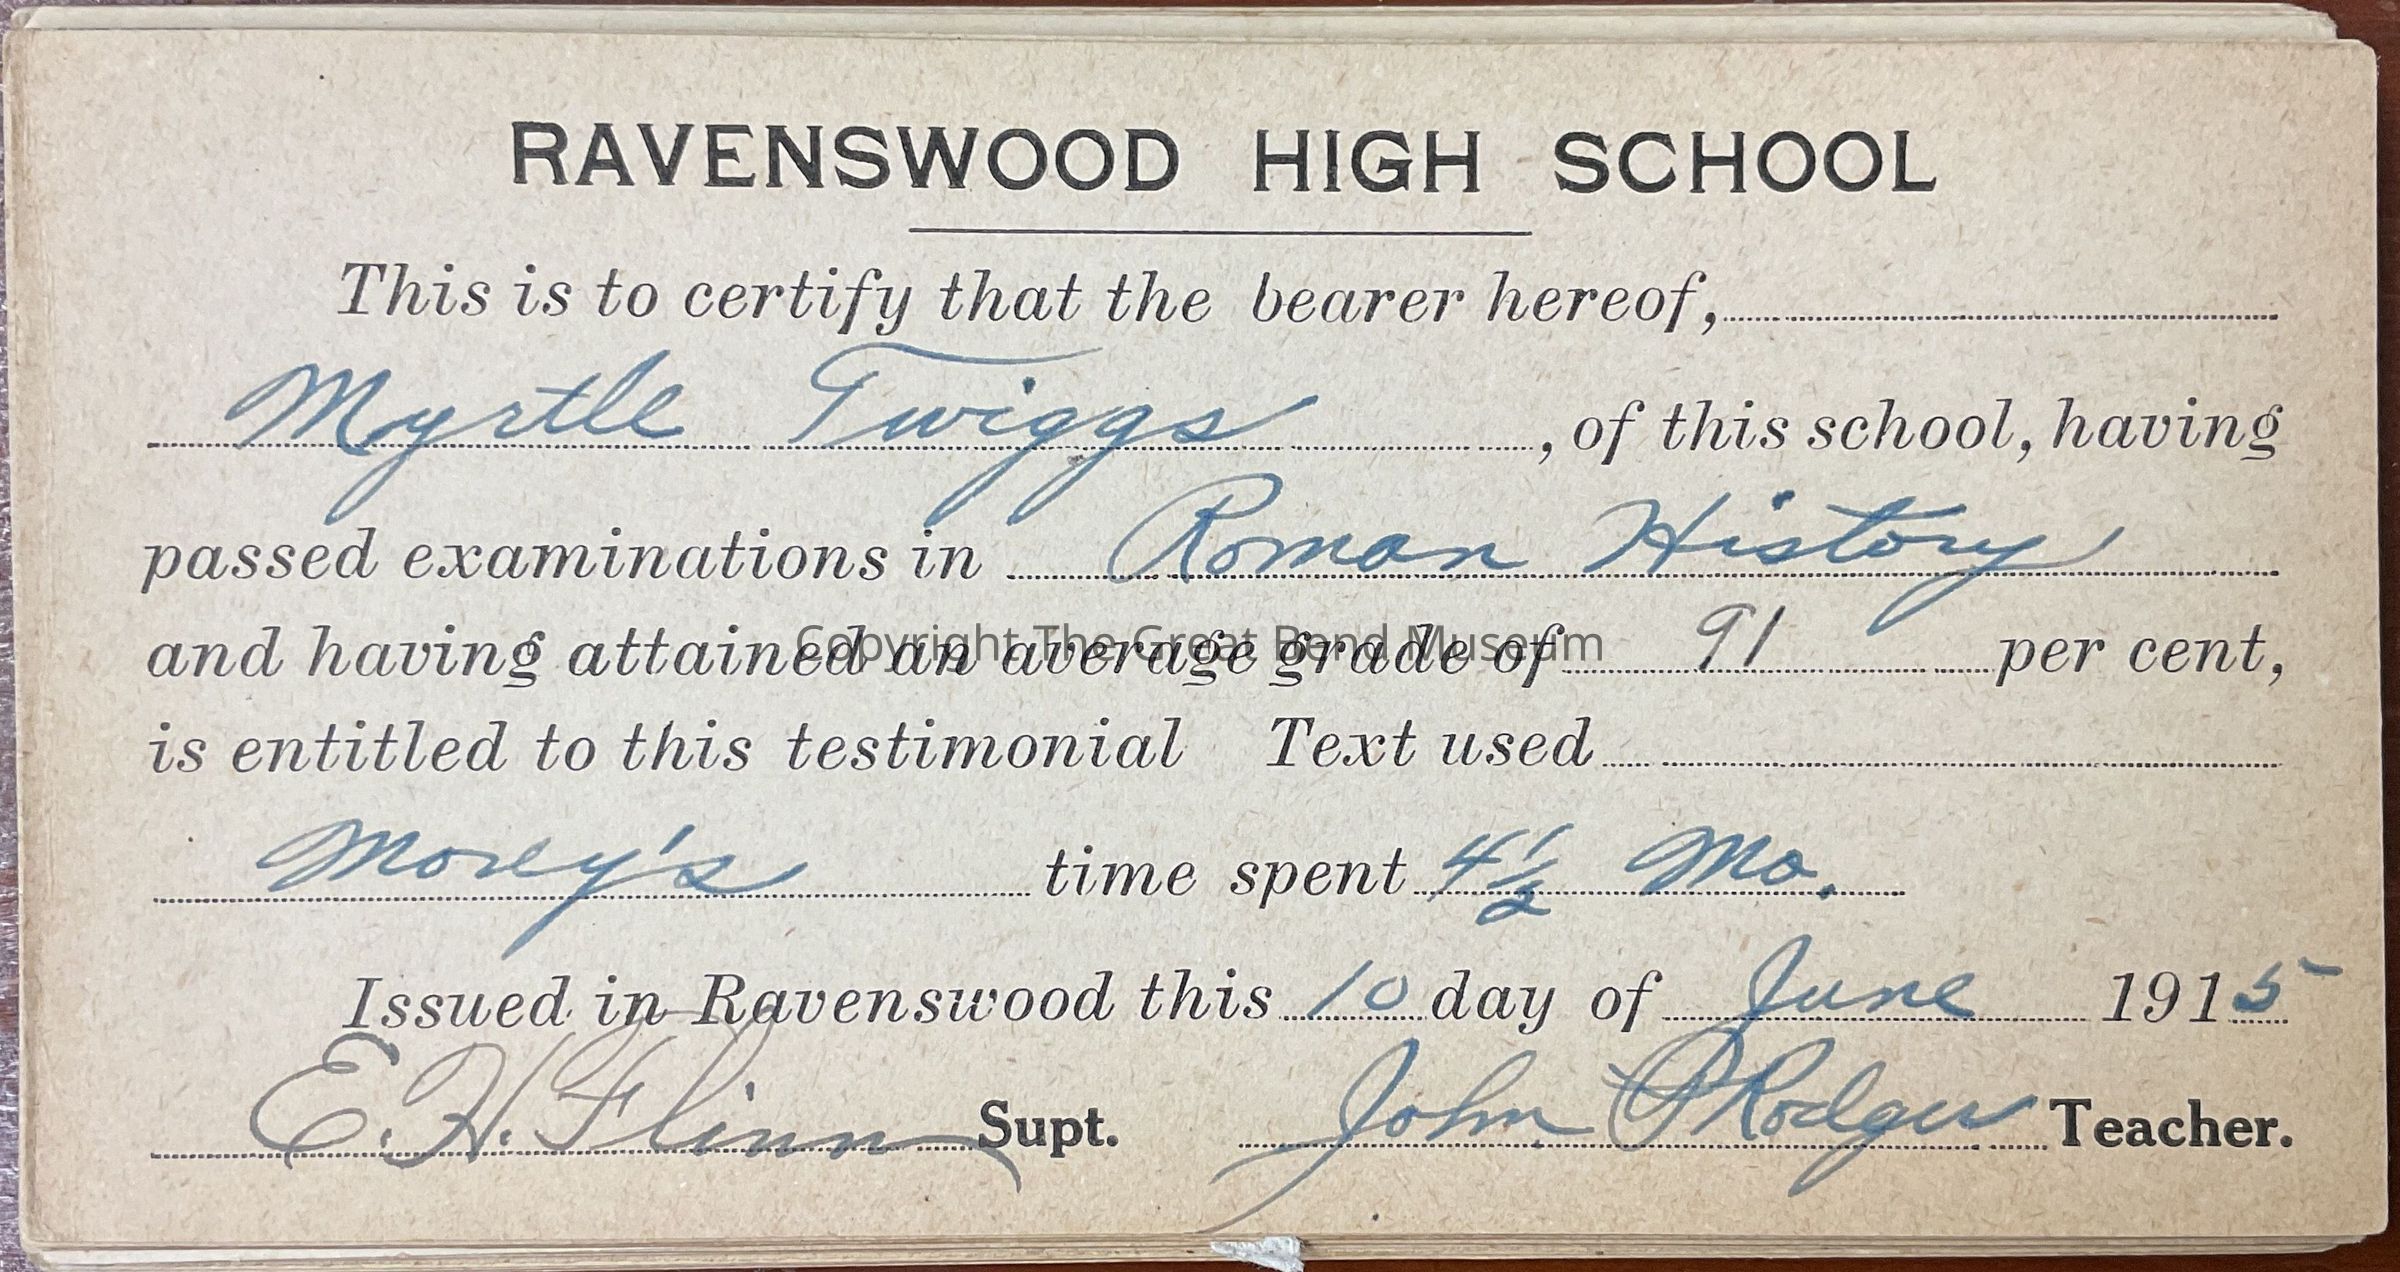 RAVENSWOOD HIGH SCHOOL
This is to certify that the bearer hereof,
Myrtle Twiggs, of this school, having
passed examinations in Roman History
and having attained an average grade of 91 per cent,
Copyright The Great Bend Museum
is entitled to this testimonial Text used
Morey's time spent 4½ Mo.
Issued in Ravenswood this 10 day of June 1915
E. H. Flinn Supt. John P Rodgers Teacher.